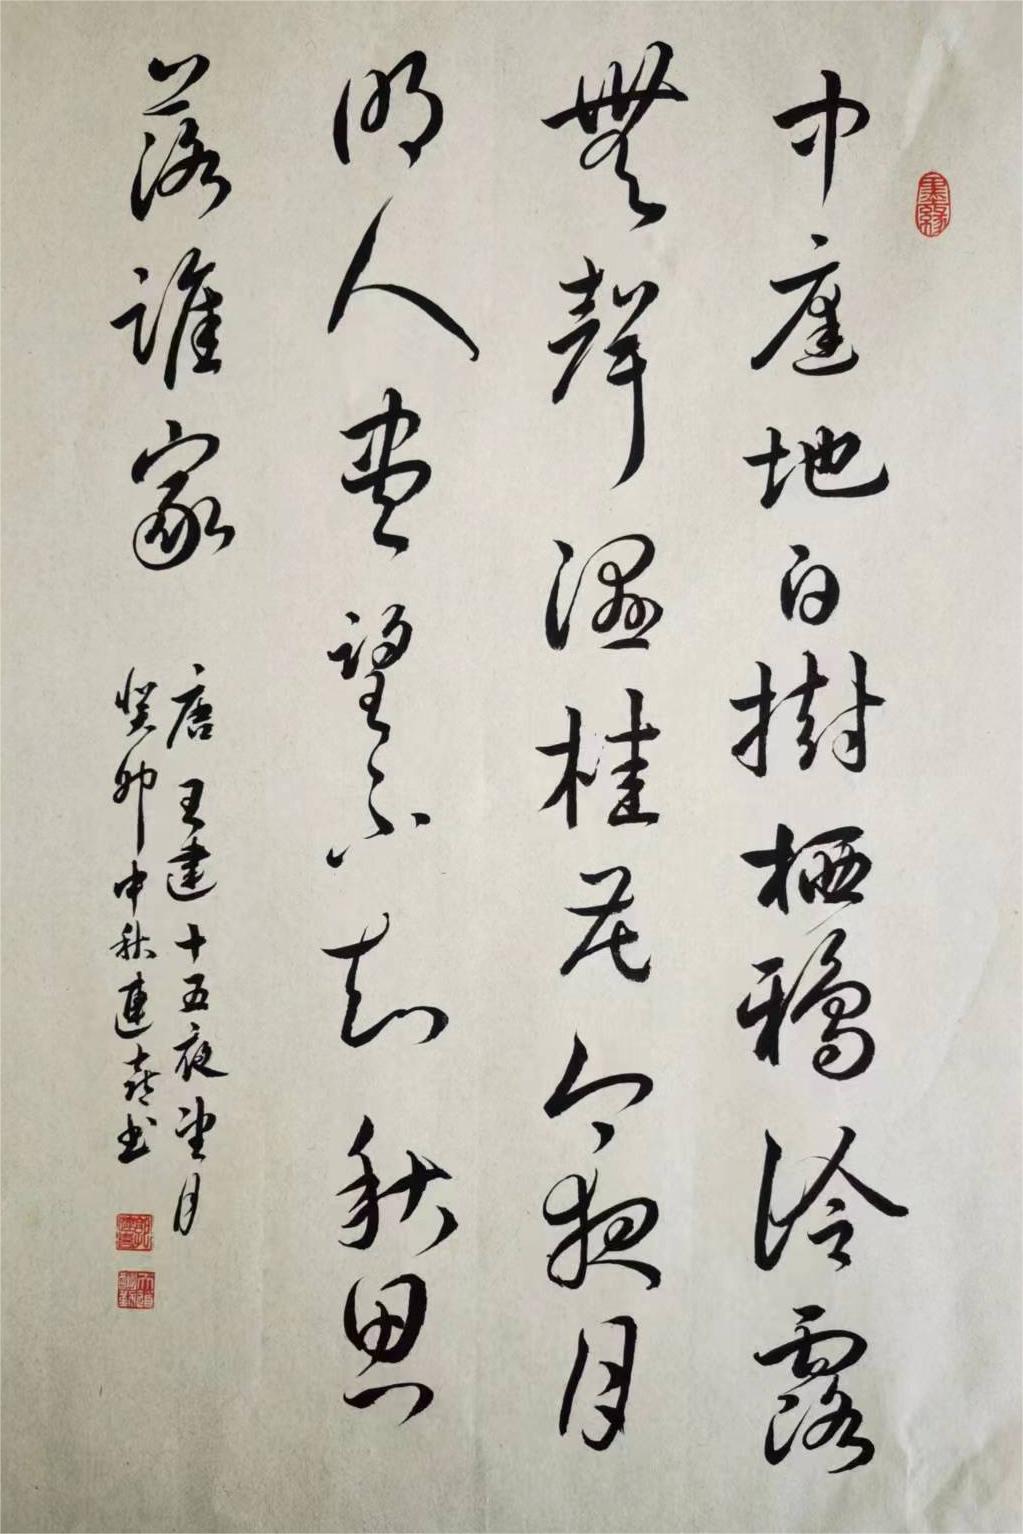 墨緣
中庭地白樹栖鴉冷露
無聲濕桂花今夜月
明人盡望不知秋思
落誰家
唐 王建 十五夜望月
癸卯中秋連喜书